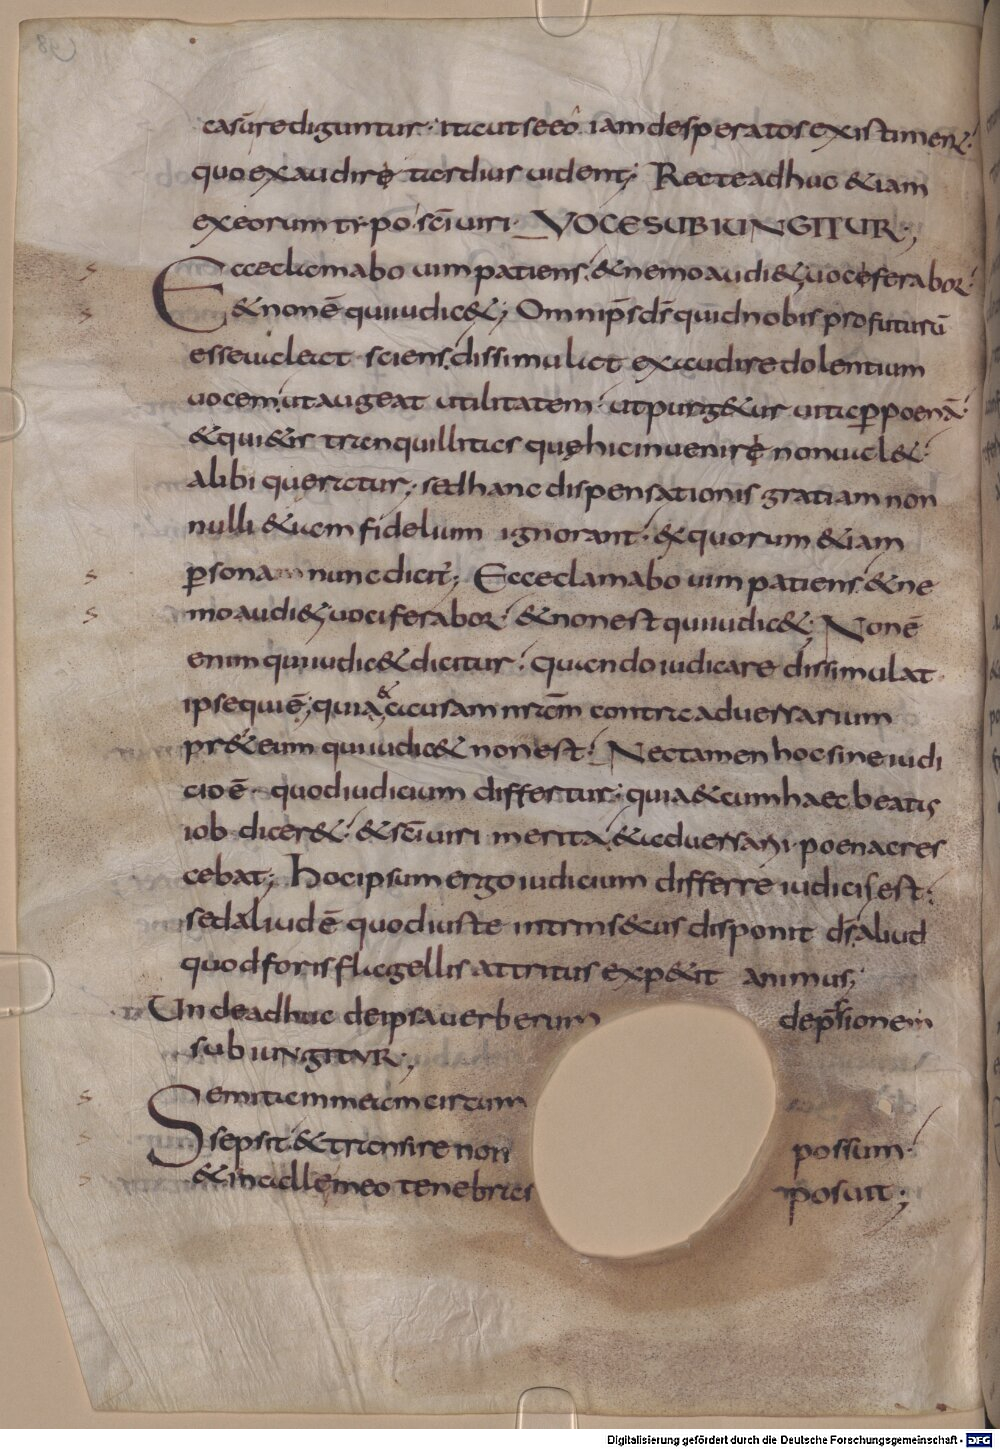 casū rediguntur· ita ut se eo iam desperatos existiment·
quo exaudirę tardius uident; Recte adhuc & iam
ex eorum typo sc̄i uiri· VOCE SUBIUNGITUR;
Ecce clamabo uim patiens· & nemo audi&· uociferabor·
& non ē qui iudic&; Omnip̄s d̄s quid nobis profuturū
esse ualeat· sciens· dissimulat exaudire dolentium
uocem· ut augeat utilitatem· ut purg&ur uita p̲ poenā·
& qui&is tranquillitas quę hic inuenirę non ual&·
alibi queratur; sed hanc dispensationis gratiam non
nulli &iam fidelium ignorant· ex quorum &iam
p̲sona nunc dicit; Ecce clamabo uim patiens· & ne
mo audi&· uociferabor· & non est qui iudic&; Non ē
enim qui iudic& dicitur· quando iudicare dissimulat
ipse qui ē; quia & causam nr̄am contra aduersarium
pr&er eum qui iudic& non est· Nec tamen hoc sine iudi
cio ē· quod iudicium differtur; quia & cum haec beatus
iob dicer&· & sc̄i uiri merita· & aduersarii poena cres
cebat; Hoc ipsum ergo iudicium differre iudicis est;
sed aliud ē quod iuste intrins&us disponit d̄s· aliud
quod foris flagellis attritus exp&it animus;
Unde adhuc de ipsa uerberum depr̄sionem
subiungitur;
Semitam meam circum
sepsit & transire non possum·
& in calle meo tenebras posuit;
Digitalisierung gefördert durch die Deutsche Forschungsgemeinschaft - DFG